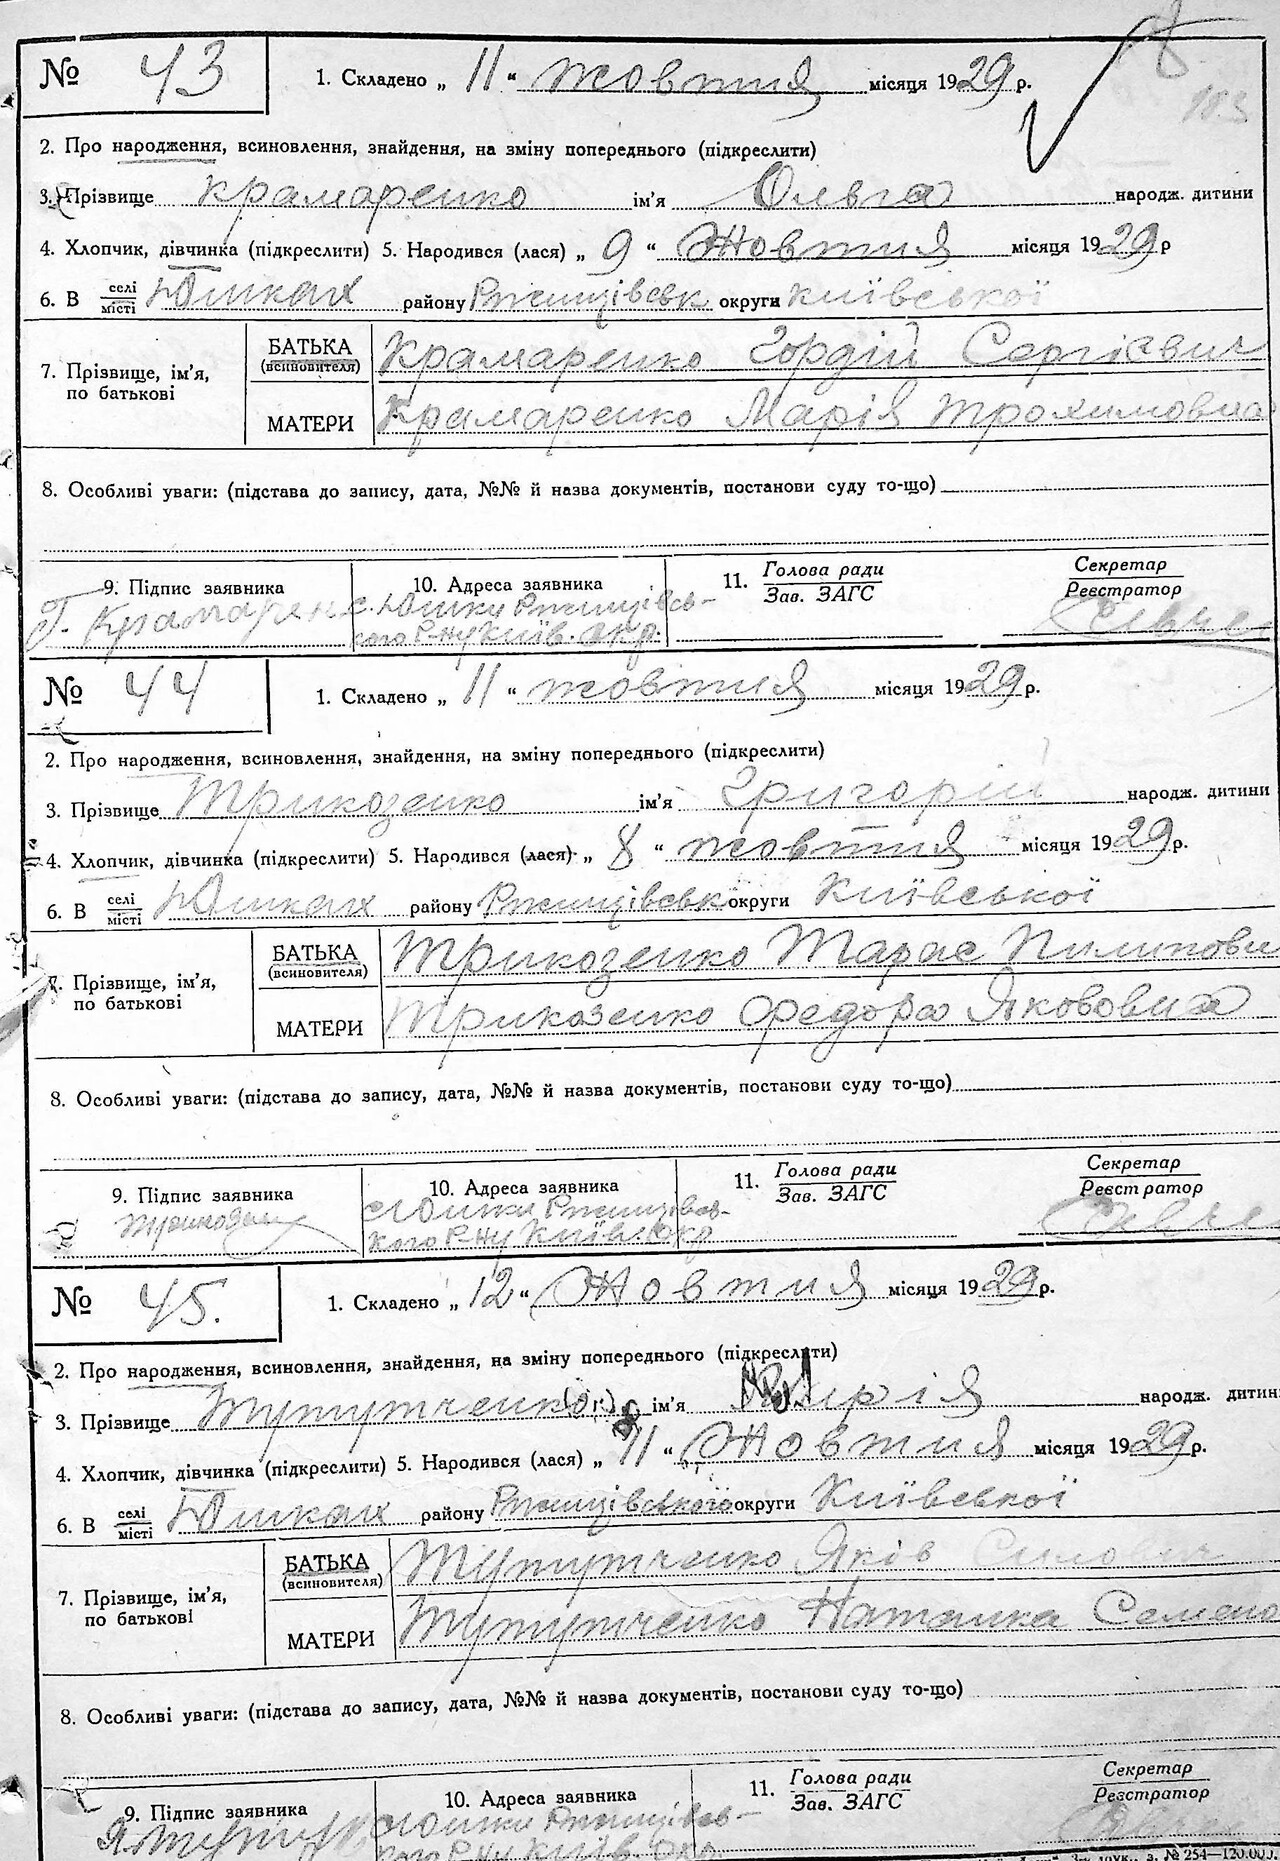 8
103
№ 43 1. Складено „ 11 “ жовтня місяця 1929 р.
2. Про народження, всиновлення, знайдення, на зміну попереднього (підкреслити)
3. Прізвище Крамаренко ім'я Ольга народж. дитини
4. Хлопчик, дівчинка (підкреслити) 5. Народився (лася) „ 9 “ Жовтня місяця 1929 р
6. В селі/місті Юшках району Ржищівськ округи Київської
7. Прізвище, ім'я, по батькові
БАТЬКА (всиновителя) Крамаренко Гордій Сергієвич
МАТЕРИ Крамаренко Марія Трохимовна
8. Особливі уваги: (підстава до запису, дата, №№ й назва документів, постанови суду то-що)
9. Підпис заявника 10. Адреса заявника 11. Голова ради / Зав. ЗАГС Секретар / Реєстратор
Г. Крамарен с. Юшки Ржищівсь-
кого Р-ну Київ. окр.
№ 44 1. Складено „ 11 “ жовтня місяця 1929 р.
2. Про народження, всиновлення, знайдення, на зміну попереднього (підкреслити)
3. Прізвище Трикозенко ім'я Григорій народж. дитини
4. Хлопчик, дівчинка (підкреслити) 5. Народився (лася) „ 8 “ жовтня місяця 1929 р.
6. В селі/місті Юшках району Ржищівськ округи Київської
7. Прізвище, ім'я, по батькові
БАТЬКА (всиновителя) Трикозенко Тарас Пилипови
МАТЕРИ Трикозенко Федора Якововна
8. Особливі уваги: (підстава до запису, дата, №№ й назва документів, постанови суду то-що)
9. Підпис заявника 10. Адреса заявника 11. Голова ради / Зав. ЗАГС Секретар / Реєстратор
с Юшки Ржищівсь-
кого Р-ну Київ. Окр
№ 45. 1. Складено „ 12 “ Жовтня місяця 1929 р.
2. Про народження, всиновлення, знайдення, на зміну попереднього (підкреслити)
3. Прізвище Тутутченко ім'я Марія народж. дитин
4. Хлопчик, дівчинка (підкреслити) 5. Народився (лася) „ 11 “ Жовтня місяця 1929 р.
6. В селі/місті Юшках району Ржищівського округи Київської
7. Прізвище, ім'я, по батькові
БАТЬКА (всиновителя) Тутутченко Яків
МАТЕРИ Тутутченко Наталка Семено
8. Особливі уваги: (підстава до запису, дата, №№ й назва документів, постанови суду то-що)
9. Підпис заявника 10. Адреса заявника 11. Голова ради / Зав. ЗАГС Секретар / Реєстратор
с Юшки Ржищівсь-
кого Р-ну Київ. Окр.
№ 254—120.000.